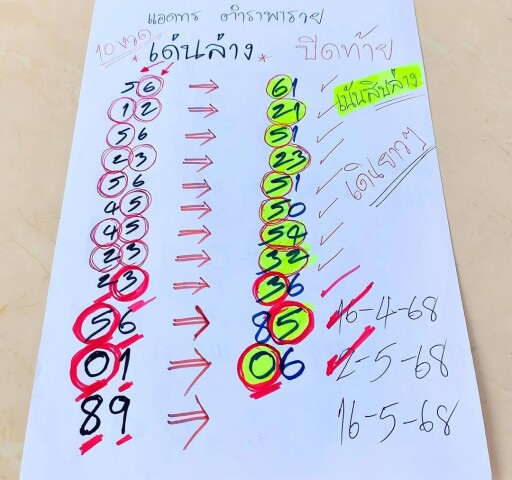 แอดทร ตำราพารวย
10 งวด *เด่นล่าง* ปิดท้าย
56 → 61 ✓ เน้นสิบล่าง
12 → 21 ✓
56 → 51 ✓ เดินยาวๆ
23 → 23 ✓
56 → 51 ✓
45 → 50 ✓
45 → 54 ✓
23 → 32 ✓
23 → 36 ✓
56 → 85 16-4-68
01 → 06 2-5-68
89 → 16-5-68